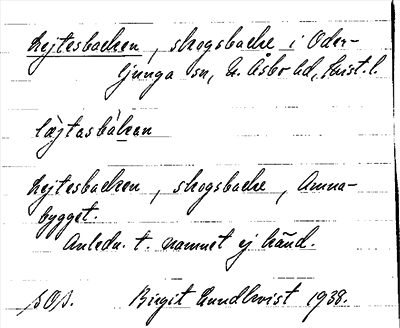 Lejtesbacken, skogsbacke i Oder-
ljunga sn, N. Åsbo hd, Krist. l.
læ̀jtasbàkan
Lejtesbacken, skogsbacke, Amna-
bygget.
Anledn. t. namnet ej känd.
SOS. Birgit Lundkvist 1938.